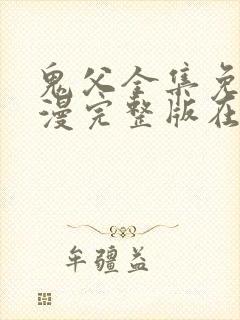 鬼父全集免
漫完整版在
牟疆益